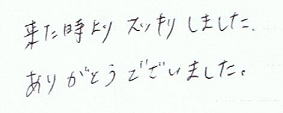 来た時より スッキリ しました.
ありがとうございました。